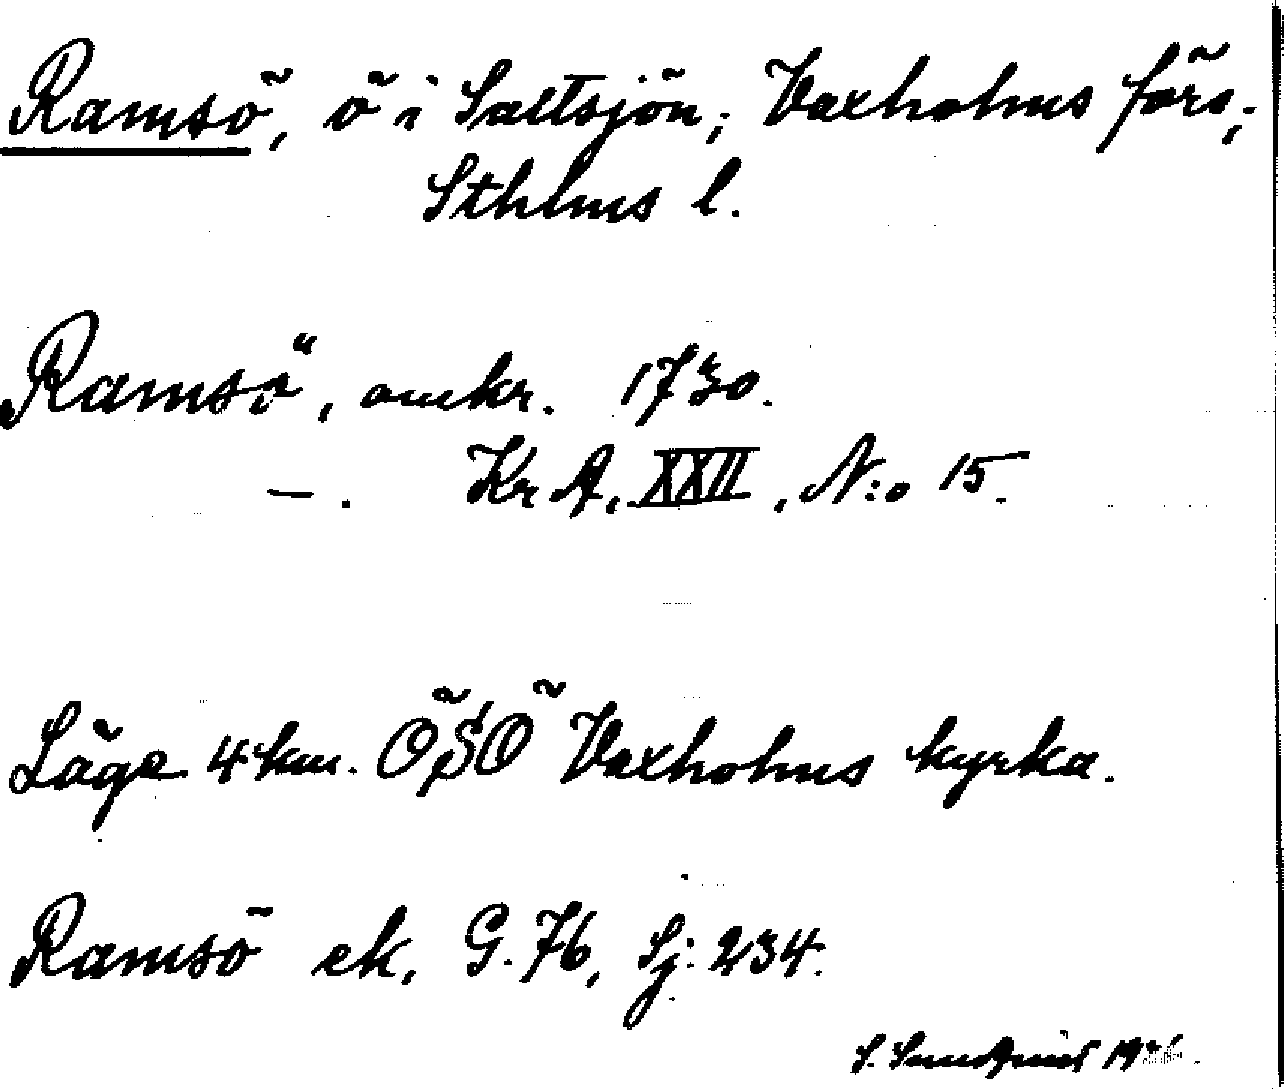 Ramsö, ö i Saltsjön; Vaxholms förs;
Sthlms l.
Ramsö, omkr. 1730.
—. Kr A, XXII, N:o 15.
Läge 4 km. ÖSÖ Vaxholms kyrka.
Ramsö ek, G. 76, Sj: 234.
S.